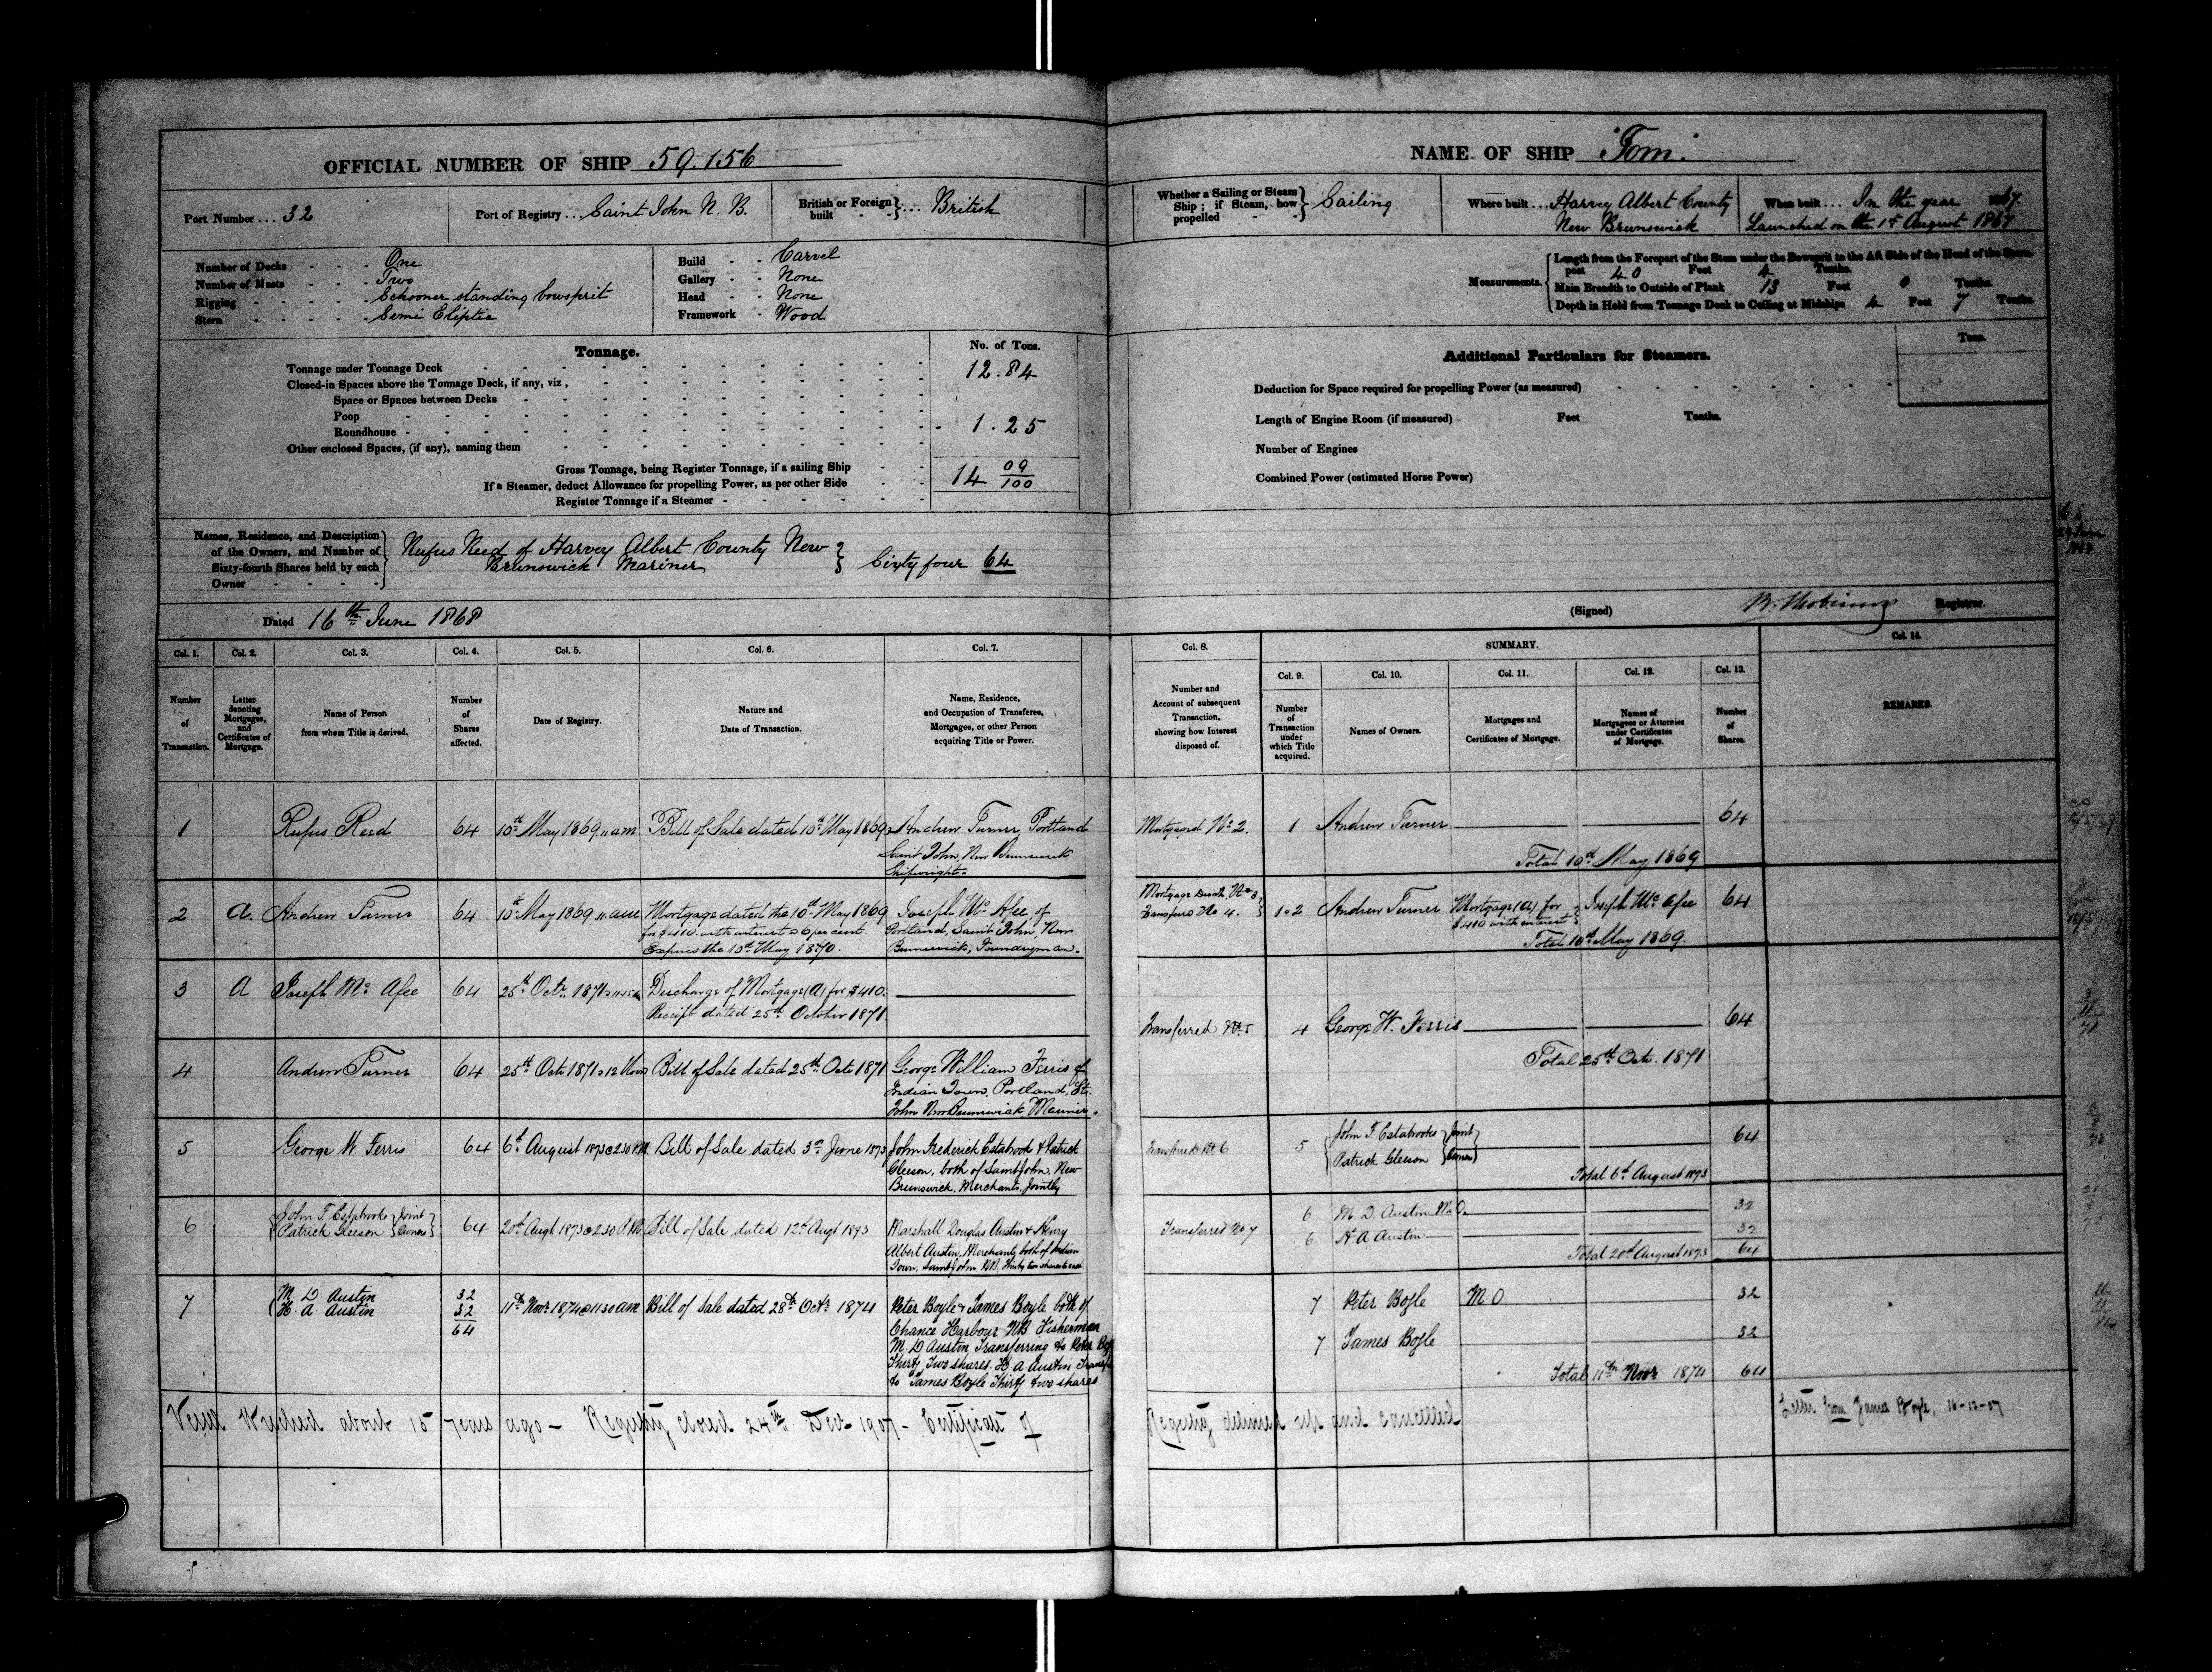 OFFICIAL NUMBER OF SHIP 59.156
Port Number ... 32
Port of Registry ... Saint John N. B.
British or Foreign built - - } .... British
Number of Decks - - - One
Number of Masts - - - Two
Rigging - - - Schooner standing bowsprit
Stern - - - Semi Eliptic
Build - - Carvel
Gallery - - None
Head - - None
Framework - Wood
Tonnage.
No. of Tons.
Tonnage under Tonnage Deck 12.84
Closed-in Spaces above the Tonnage Deck, if any, viz,
Space or Spaces between Decks
Poop
Roundhouse - 1.25
Other enclosed Spaces, (if any), naming them
Gross Tonnage, being Register Tonnage, if a sailing Ship 14 09/100
If a Steamer, deduct Allowance for propelling Power, as per other Side
Register Tonnage if a Steamer
Names, Residence, and Description
of the Owners, and Number of
Sixty-fourth Shares held by each
Owner
Rufus Reed of Harvey Albert County New
Brunswick Mariner } Sixty four 64
Dated 16th June 1868
NAME OF SHIP "Tom"
Whether a Sailing or Steam Ship; if Steam, how propelled } Sailing
Where built ... Harvey Albert County
New Brunswick
When built ... In the year 1867.
Launched on the 1st August 1867
Measurements.
Length from the Forepart of the Stem under the Bowsprit to the Aft Side of the Head of the Stern-
post 40 Feet 4 Tenths.
Main Breadth to Outside of Plank 13 Feet 0 Tenths.
Depth in Hold from Tonnage Deck to Ceiling at Midships 4 Feet 7 Tenths.
Additional Particulars for Steamers.
Tons.
Deduction for Space required for propelling Power (as measured)
Length of Engine Room (if measured) Feet Tenths.
Number of Engines
Combined Power (estimated Horse Power)
29 June
1868
(Signed) Registrar.
Col. 1. Col. 2. Col. 3. Col. 4. Col. 5. Col. 6. Col. 7.
Number of Transaction.
Letter denoting Mortgages, and Certificates of Mortgage.
Name of Person from whom Title is derived.
Number of Shares affected.
Date of Registry.
Nature and Date of Transaction.
Name, Residence, and Occupation of Transferee, Mortgagee, or other Person acquiring Title or Power.
Col. 8. SUMMARY. Col. 14.
Col. 9. Col. 10. Col. 11. Col. 12. Col. 13.
Number and Account of subsequent Transaction, showing how Interest disposed of.
Number of Transaction under which Title acquired.
Names of Owners.
Mortgages and Certificates of Mortgage.
Names of Mortgagees or Attornies under Certificates of Mortgage.
Number of Shares.
REMARKS.
1 Rufus Reed 64 10th May 1869 11 am Bill of Sale dated 10th May 1869 Andrew Turner, Portland
Saint John, New Brunswick
Shipwright.
Mortgaged No 2. 1 Andrew Turner 64
Total 10th May 1869
2 A. Andrew Turner 64 10th May 1869 11 am Mortgage dated the 10th May 1869
for $410 with interest @ 6 per cent
Expires the 10th May 1870.
Joseph Mc Afee of
Portland, Saint John, New
Brunswick, Foundryman.
Mortgage Disch. No 3
Transferd No 4. } 1&2 Andrew Turner Mortgage (A) for
$410 with interest } Joseph Mc Afee 64
Total 10th May 1869.
3 A Joseph Mc Afee 64 25th Octr. 1871 Discharge of Mortgage (A) for $410.
Receipt dated 25th October 1871.
4 Andrew Turner 64 25th Octr 1871 12 Noon Bill of Sale dated 25th Octr 1871 George William Ferris of
Indian Town, Portland, St.
John New Brunswick, Mariner.
Transferred No. 5 4 George W. Ferris 64
Total 25th Octr. 1871
5 George W Ferris 64 6th August 1873 @ 2.30 P.M. Bill of Sale dated 3rd June 1873 John Frederick Estabrook & Patrick
Gleeson, both of Saint John, New
Brunswick, Merchants, Jointly
Transferred No. 6 5 { John F. Estabrooks
Patrick Gleeson } Joint Owners 64
Total 6th August 1873
6 { John F Estabrooks
Patrick Gleeson } Joint Owners 64 20th Augt 1873 @ 2.30 P.M. Bill of Sale dated 12th Augt 1873 Marshall Douglas Austin & Henry
Albert Austin, Merchants, both of Indian
Town, Saint John N.B. Thirty two shares to each
Transferred No 7 6 M. D. Austin M.O. 32
6 H A Austin 32
Total 20th August 1873 64
7 { M. D Austin 32
H. A Austin 32
64
11th Novr 1874 @ 11 30 am Bill of Sale dated 28th Octr 1874 Peter Boyle & James Boyle both of
Chance Harbour NB Fisherman
M. D Austin Transferring to Peter
Thirty Two shares. H. A Austin
to James Boyle Thirty two shares
7 Peter Boyle M O 32
7 James Boyle 32
Total 11th Novr 1874 64
Vessel Wrecked about 15 years ago - Registry closed 24th Dec 1907 - Certificate of Registry delivered up and cancelled
Letter from James Boyle, 16-12-07